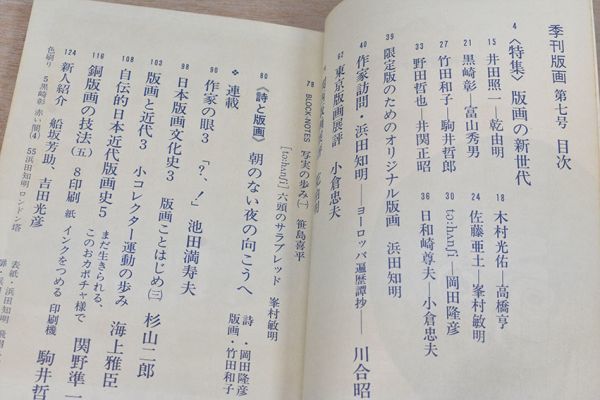 季刊版画 第七号 目次
4 〈特集〉版画の新世代
15 井田照一──乾由明
18 木村光佑──高橋亨
21 黒崎彰──富山秀男
24 佐藤亜土──峯村敏明
27 竹田和子──駒井哲郎
30 [to:hanfi]──岡田隆彦
33 野田哲也──井関正昭
36 日和崎尊夫──小倉忠夫
39 限定版のためのオリジナル版画 浜田知明
40 作家訪問・浜田知明──ヨーロッパ遍歴譚抄──川合昭
67 東京版画展評 小倉忠夫
79 BLOCK NOTES 写実の歩み㈠ 笹島喜平
[to:hanfi] 六頭のサラブレッド 峯村敏明
80 《詩と版画》 朝のない夜の向こうへ 詩・岡田隆彦
版画・竹田和子
連載
90 作家の眼3 「?、!」 池田満寿夫
98 日本版画文化史3 版画ことはじめ㈢ 杉山二郎
103 版画と近代3 小コレクター運動の歩み 海上雅臣
108 自伝的日本近代版画史5 まだ生きられる、
このおカボチャ様で 関野準一
116 銅版画の技法(五) 8印刷 紙 インクをつめる 印刷機 駒井哲
124 新人紹介 船坂芳助、吉田光彦
色刷り 5黒崎彰 赤い闇(4) 55浜田知明 ロンドン塔
表紙・浜田知明